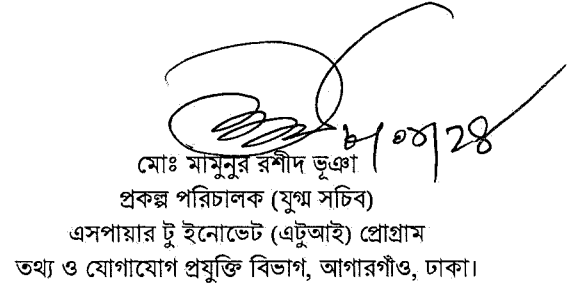 মোঃ মামুনুর রশীদ ভূঞা
প্রকল্প পরিচালক (যুগ্ম সচিব)
এসপায়ার টু ইনোভেট (এটুআই) প্রোগ্রাম
তথ্য ও যোগাযোগ প্রযুক্তি বিভাগ, আগারগাঁও, ঢাকা।